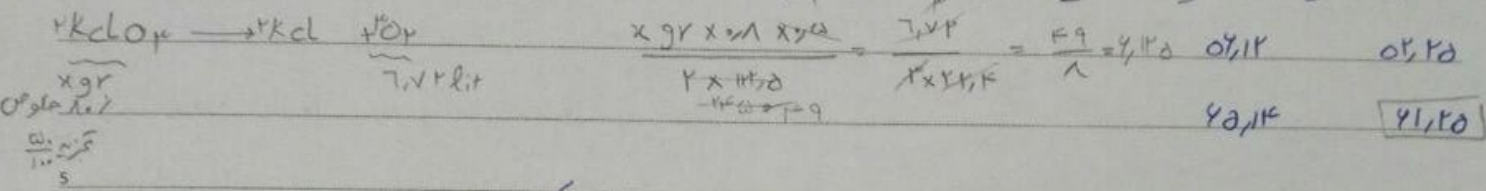 ۲KclO۳ → ۲Kcl + ۳O۲
x gr
۶,۷۲ lit
x gr × ۰,۸ × ۰,۵ / ۲ × ۱۲۲,۵ = ۶,۷۲ / ۳ × ۲۲,۴ = ۴۹ / ۸ = ۶,۱۲۵
۵۶,۱۲ ۵۲,۲۵
۶۵,۱۴ ۶۱,۲۵
۵۰ / ۱۰۰